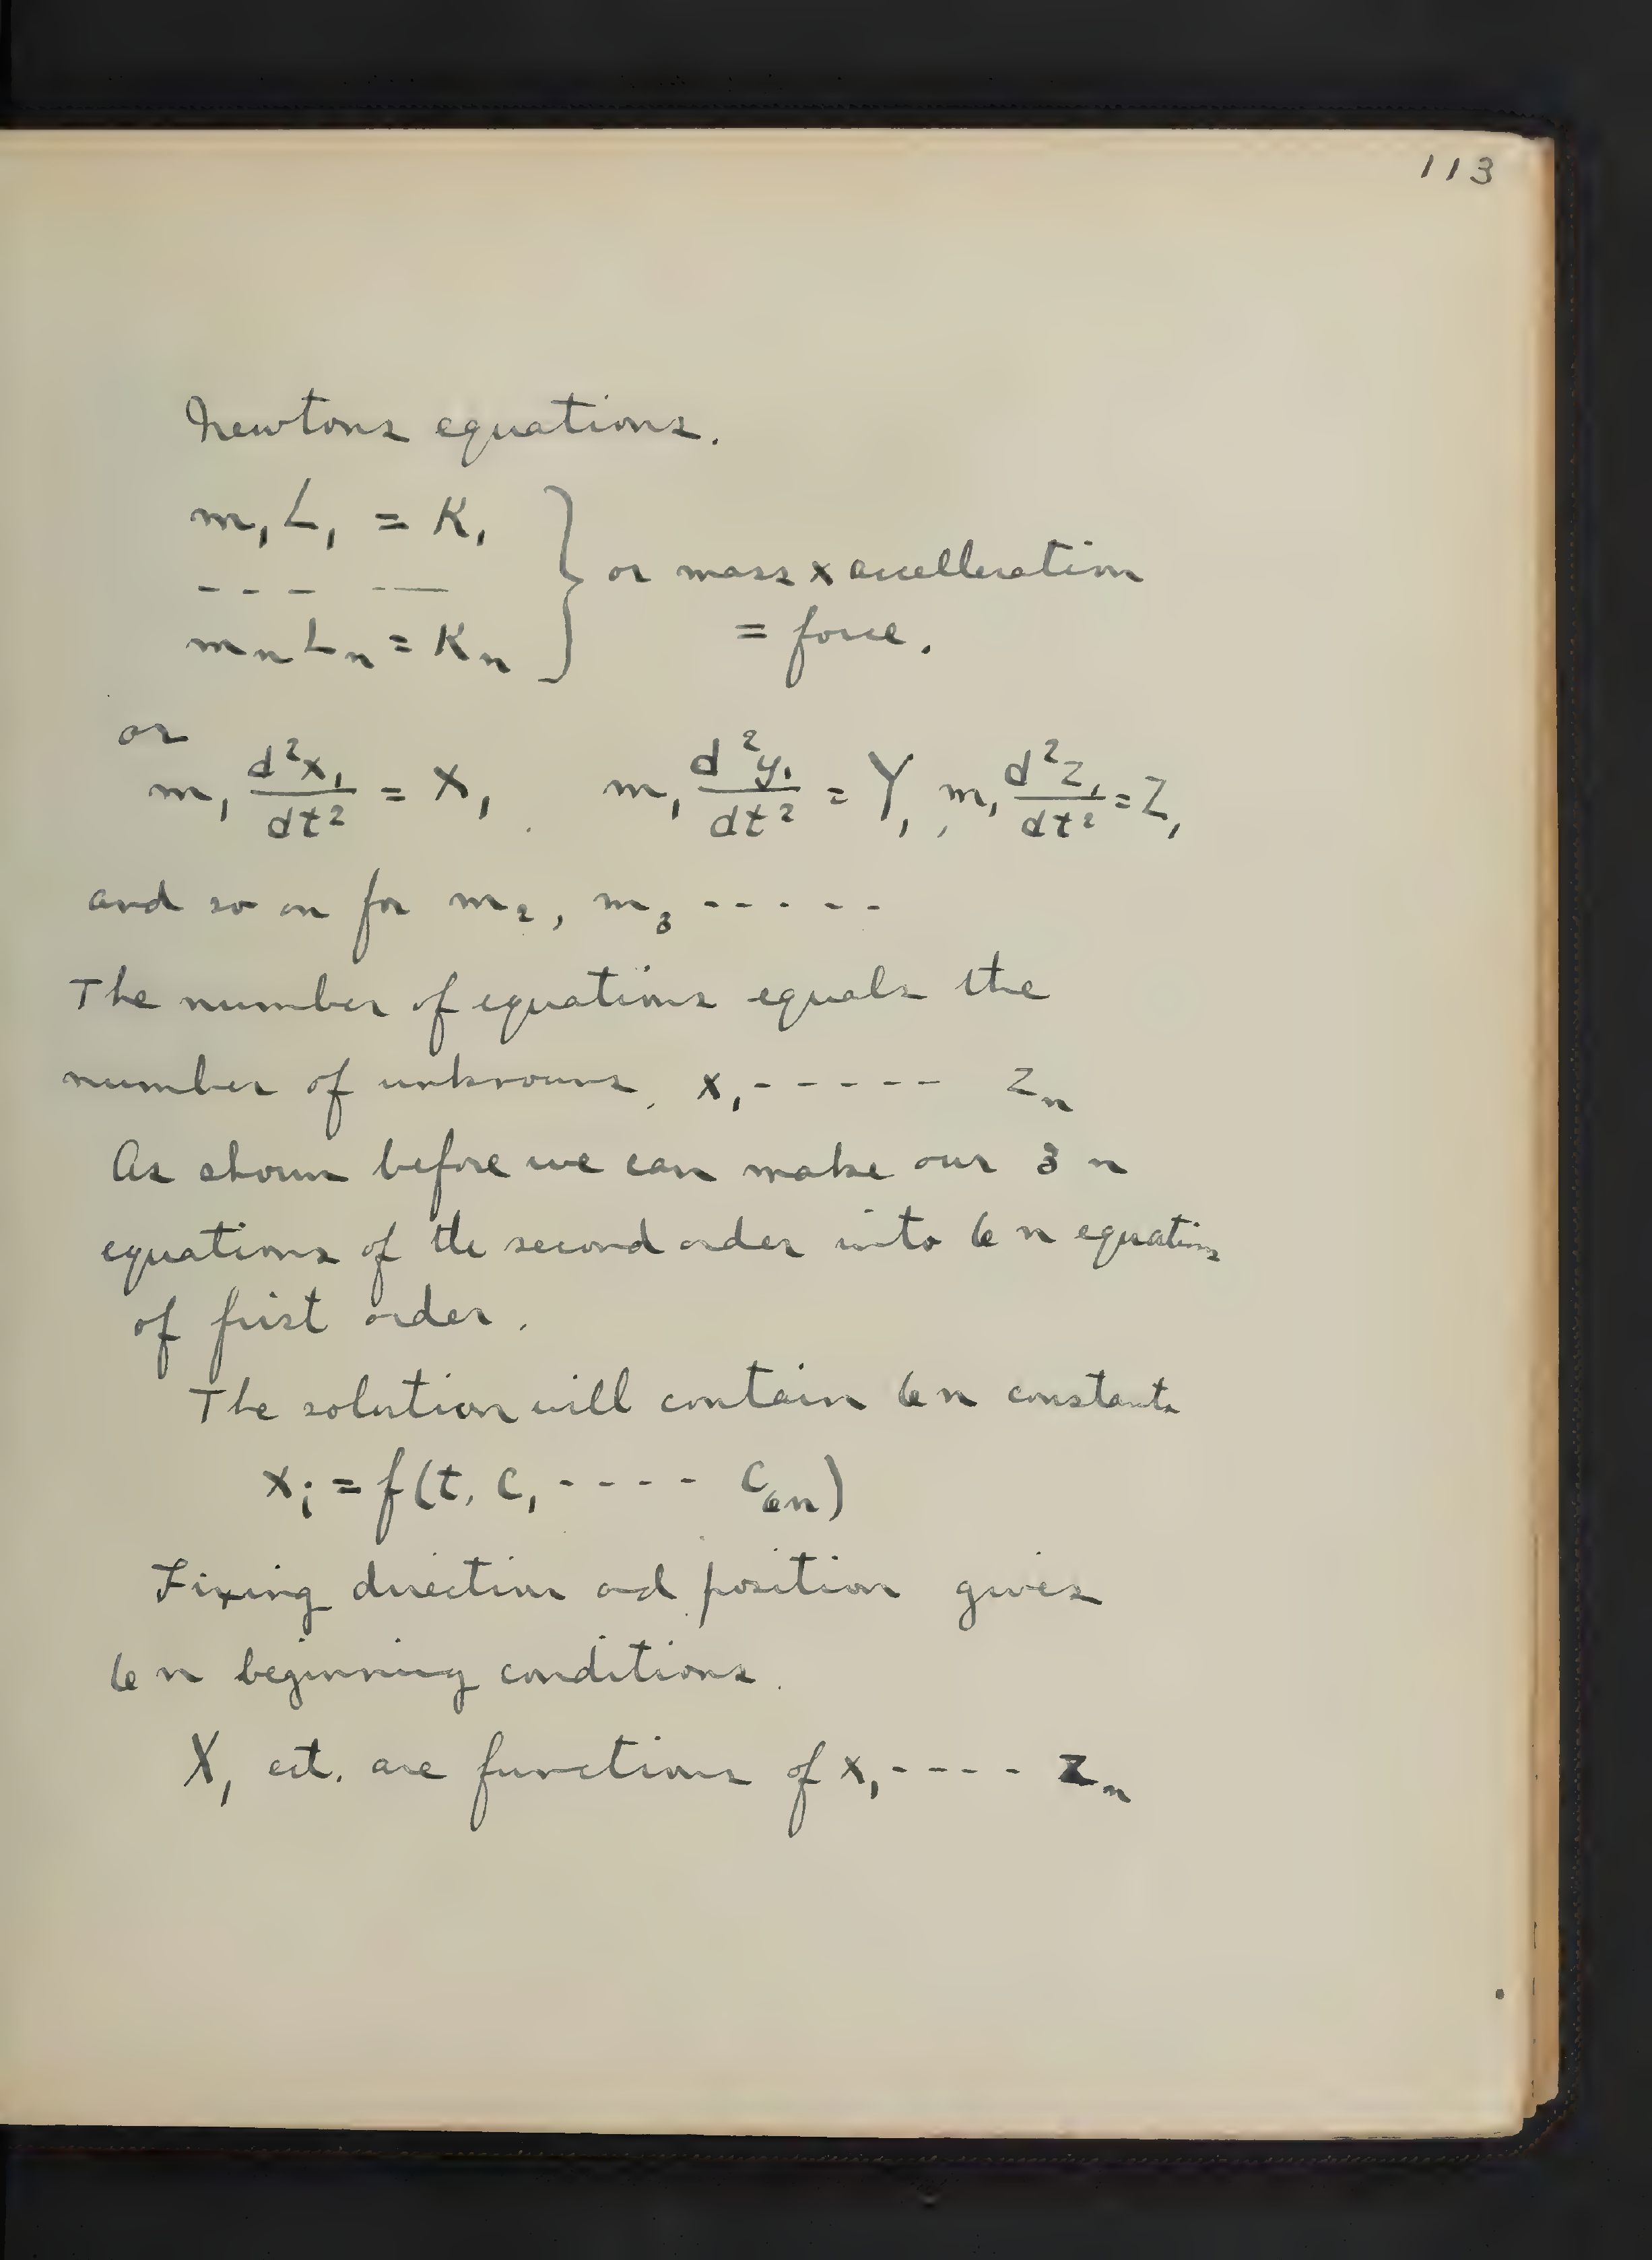 113
Newtons equations.
m₁ L₁ = K₁
- - - —
mₙ Lₙ = Kₙ } or mass x accelleration
= force.
or
m₁ d²x₁/dt² = X₁, m₁ d²y₁/dt² = Y₁, m₁ d²z₁/dt² = Z₁
and so on for m₂, m₃ - - - - -
The number of equations equals the
number of unknowns, x₁ - - - - - - zₙ
As shown before we can make our 3 n
equations of the second order into 6 n equations
of first order.
The solution will contain 6n constants
xᵢ = f(t, c₁ - - - - c₆ₙ)
Fixing direction and position gives
6 n beginning conditions.
X₁ ect. are functions of x₁ - - - - zₙ